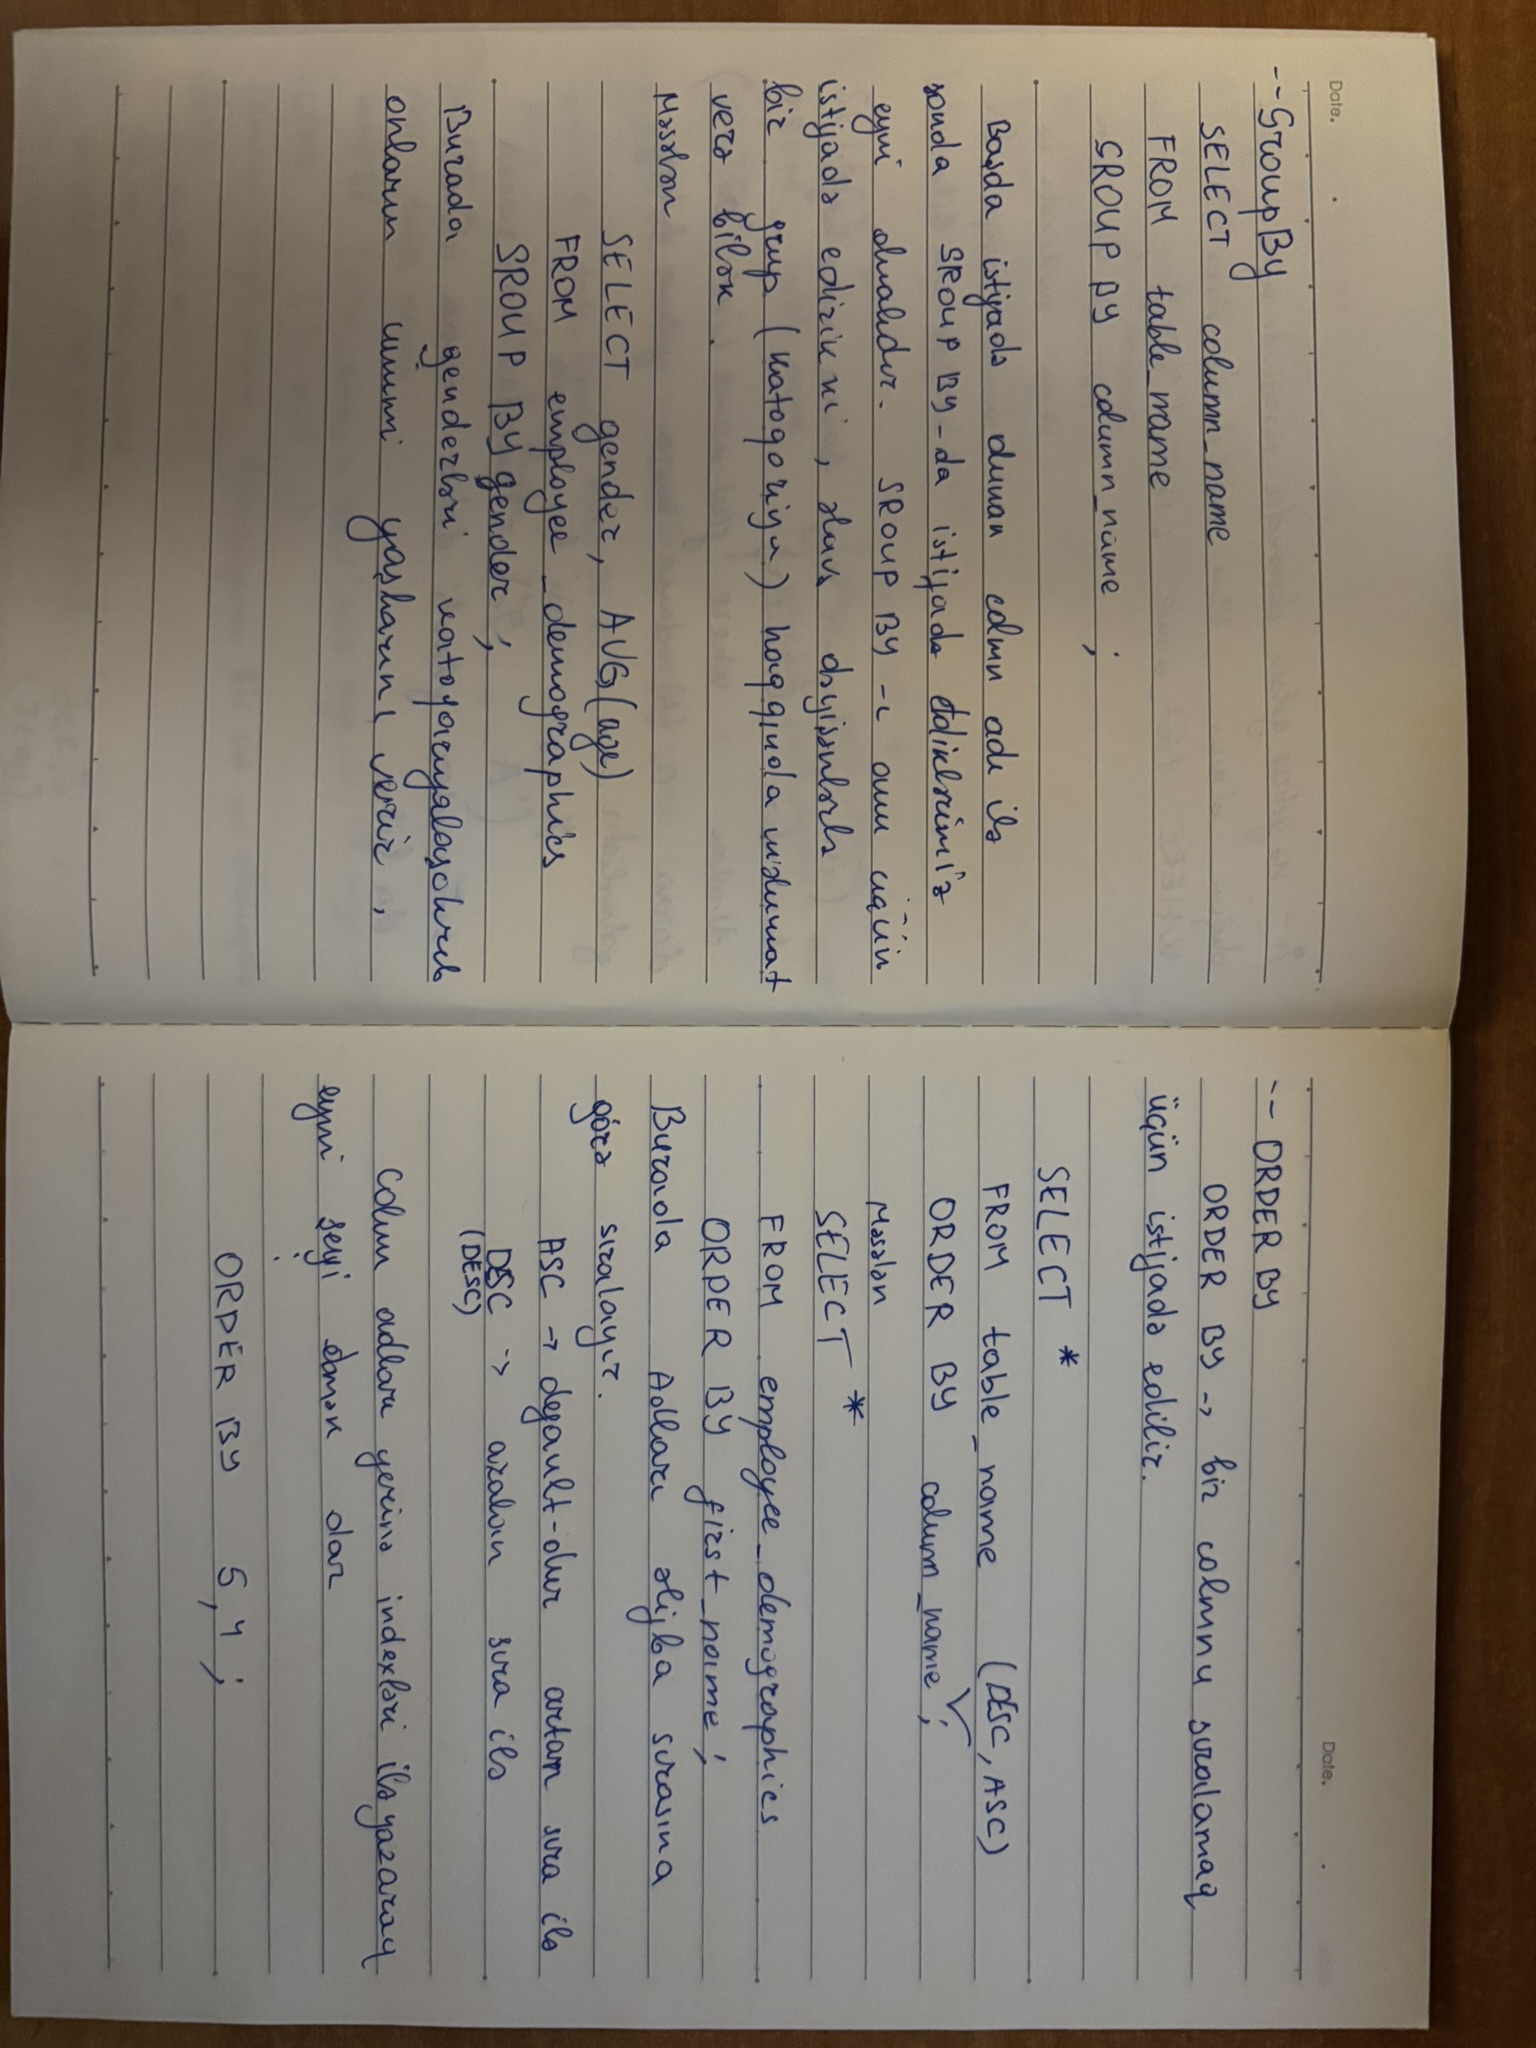 Date.
--Group By
SELECT column_name
FROM table_name
GROUP BY column_name ;
Başda istifadə olunan colmn adı ilə
sonda GROUP BY-da istifadə etdiklərimiz
eyni olmalıdır. GROUP BY-ı onun üçün
istifadə edirik ki, əlavə dəyişənlərlə
bir grup (katogoriya) haqqında məlumat
verə bilək.
Məsələn
SELECT gender, AVG(age)
FROM employee_demographics
GROUP BY gender;
Burada genderləri katogoriyalaşdırıb
onların ümumi yaşlarını verir.
Date.
-- ORDER BY
ORDER BY → bir colmnu sıralamaq
üçün istifadə edilir.
SELECT *
FROM table_name (DESC, ASC)
ORDER BY colum_name ;
Məsələn
SELECT *
FROM employee_demographics
ORDER BY first_name;
Burada Adları əlifba sırasına
görə sıralayır.
ASC → default-dur artan sıra ilə
DESC → azalan sıra ilə
(DESC)
Colmn adları yerinə indexləri ilə yazaraq
eyni şeyi etmək olar
ORDER BY 5,4 ;